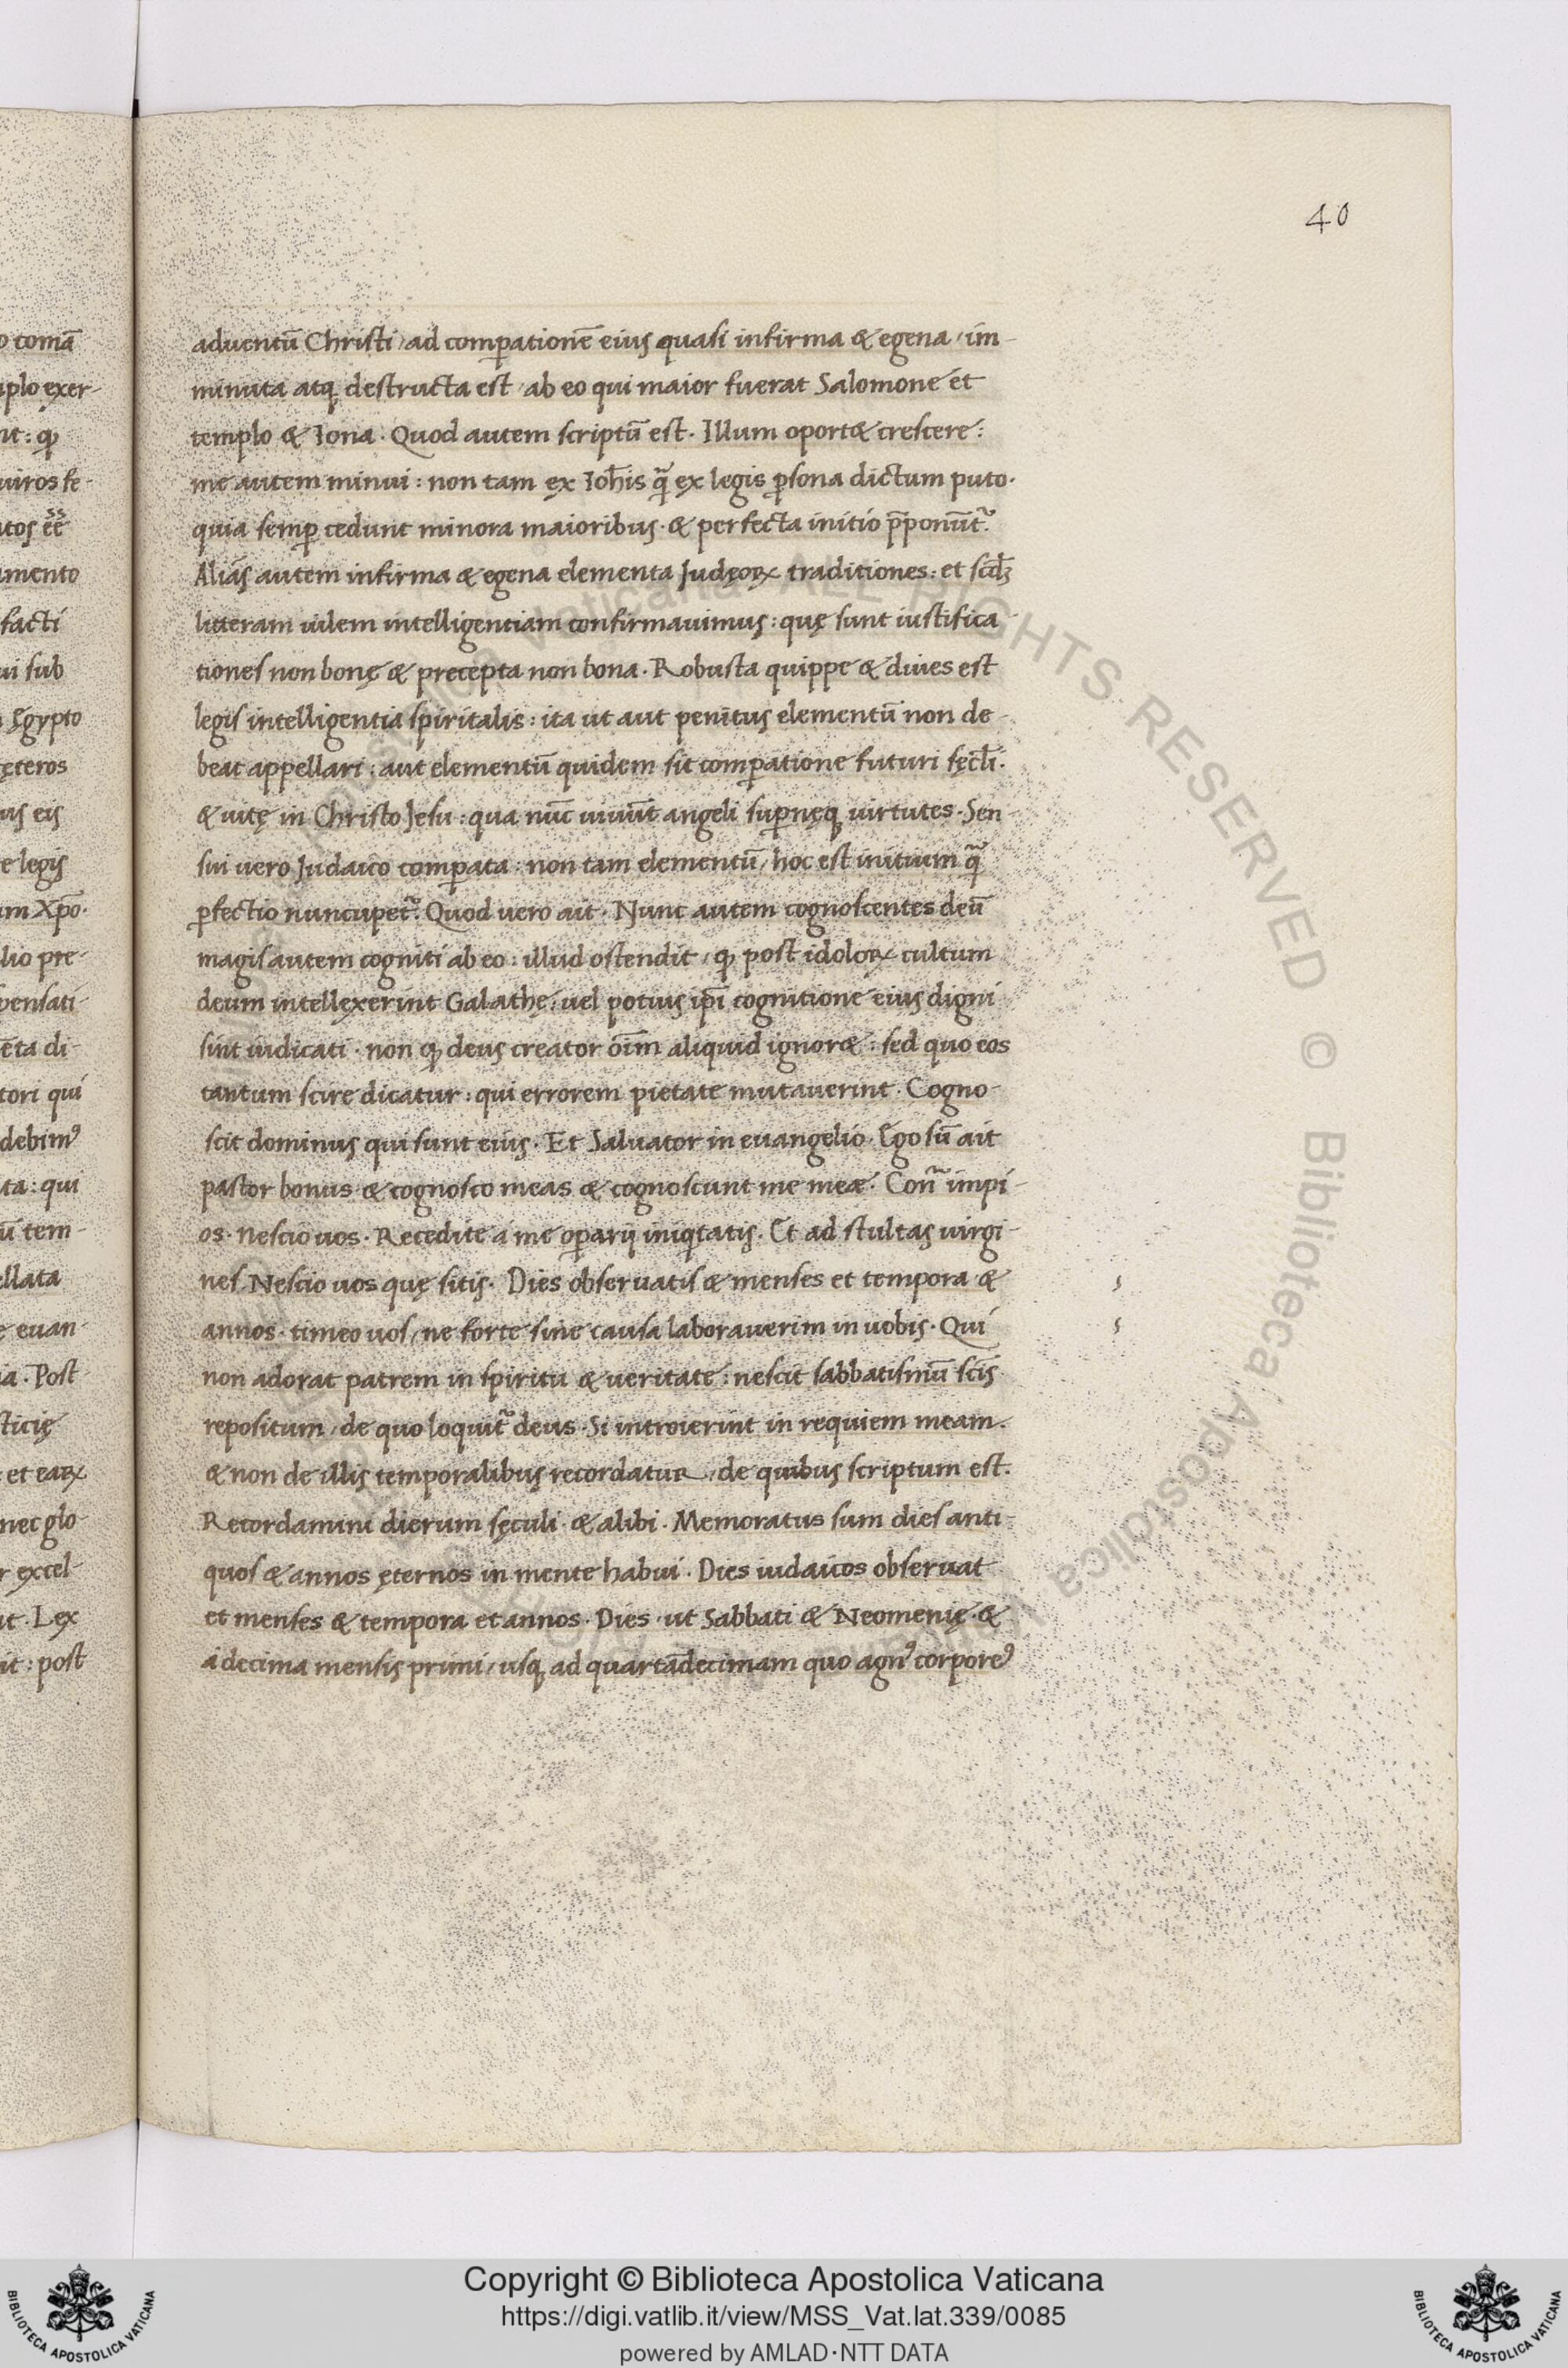 40
o comā
mplo exer-
nt: ꝙ
uiros fe-
ntos ēē
amento
facti
ui sub
Egypto
cęteros
us eis
e legis
um Xp̄o.
lio pre-
pensati-
ēta di-
tori qui
debimꝰ
ta: qui
ū tem-
ellata
e euan-
ia. Post
sticię
et eaꝝ
nec glo-
r excel-
ut. Lex
it: post
aduentū Christi, ad comꝑationē eius quasi infirma & egena, im-
minuta atq; destructa est, ab eo qui maior fuerat Salomone et
templo & Iona. Quod autem scriptū est. Illum oportet crescere:
me autem minui: non tam ex Ioh̄is q̃ ex legis ꝑsona dictum puto.
quia semꝑ cedunt minora maioribus. & perfecta initio p̄ponūt᷒.
Alias autem infirma & egena elementa Judęoꝝ traditiones: et scd̄ꝫ
litteram uilem intelligentiam confirmauimus: quę sunt iustifica-
tiones non bonę & precepta non bona. Robusta quippe & diues est
legis intelligentia spiritalis: ita ut aut penitus elementū non de-
beat appellari: aut elementū quidem sit comꝑatione futuri sęcl̄i.
& uitę in Christo Jesu: qua nūc uiuūt angeli suꝑnęq; uirtutes. Sen-
sui uero Judaico comꝑata: non tam elementū, hoc est initium q̃
ꝑfectio nuncupet᷒. Quod uero ait. Nunc autem cognoscentes deū
magis autem cogniti ab eo: illud ostendit, ꝙ post idoloꝝ cultum
deum intellexerint Galathę, uel potius ip̄i cognitione eius digni
sint iudicati. non ꝙ deus creator oīm aliquid ignoret: sed quo eos
tantum scire dicatur: qui errorem pietate mutauerint. Cogno-
scit dominus qui sunt eius. Et Saluator in euangelio. Ego sū ait
pastor bonus & cognosco meas & cognoscunt me meæ. Con̄ impi-
os. Nescio uos. Recedite a me oꝑarij iniqtatis. Et ad stultas uirgi-
nes. Nescio uos quę sitis. Dies obseruatis & menses et tempora &
annos. timeo uos, ne forte sine causa laborauerim in uobis. Qui
non adorat patrem in spiritu & ueritate: nescit sabbatismū sc̄is
repositum, de quo loquit᷒ deus. Si introierint in requiem meam.
& non de illis temporalibus recordatur, de quibus scriptum est.
Recordamini dierum sęculi. & alibi. Memoratus sum dies anti-
quos & annos ęternos in mente habui. Dies iudaicos obseruat
et menses & tempora et annos. Dies, ut Sabbati & Neomenię. &
a decima mensis primi, usq; ad quartādecimam quo agnꝰ corporeꝰ
Copyright © Biblioteca Apostolica Vaticana
https://digi.vatlib.it/view/MSS_Vat.lat.339/0085
powered by AMLAD·NTT DATA
BIBLIOTECA APOSTOLICA VATICANA
BIBLIOTECA APOSTOLICA VATICANA